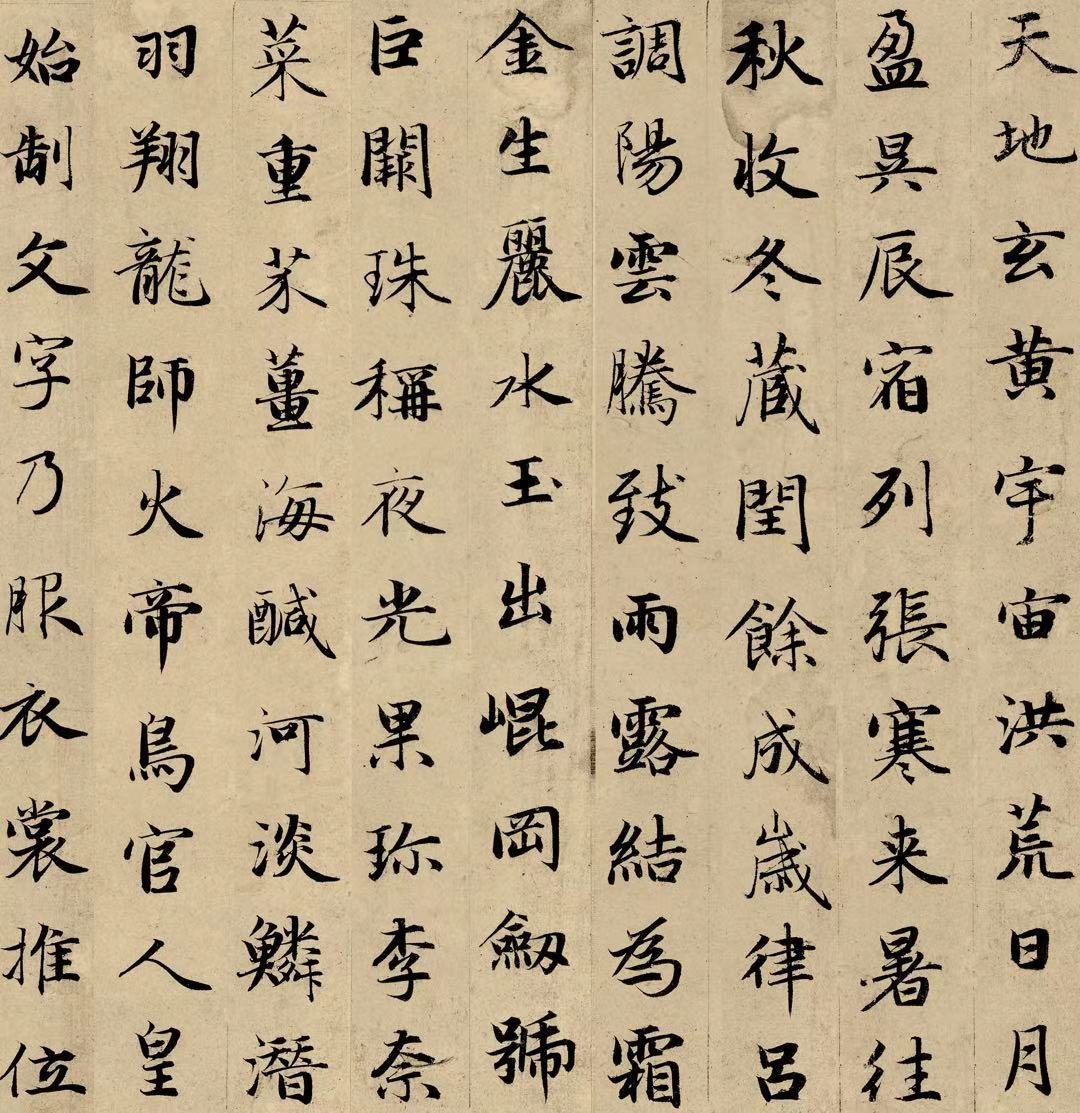 天地玄黄宇宙洪荒日月
盈昃辰宿列張寒来暑往
秋收冬蔵閏餘成歲律呂
調陽雲騰致雨露結為霜
金生麗水玉出崐岡劒號
巨闕珠稱夜光果珎李奈
菜重芥薑海醎河淡鱗潛
羽翔龍師火帝鳥官人皇
始制文字乃服衣裳推位